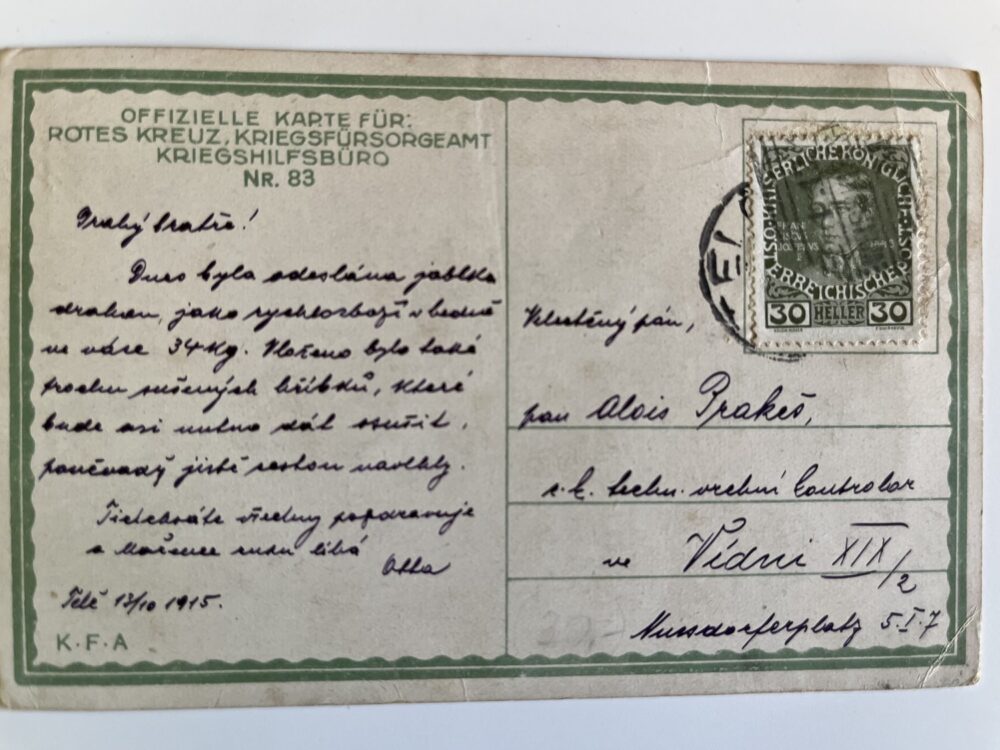 OFFIZIELLE KARTE FÜR:
ROTES KREUZ, KRIEGSFÜRSORGEAMT
KRIEGSHILFSBÜRO
NR. 83
Drahý bratře!
Dnes byla odeslána jablka
drahou, jako rychlozboží v bedně
ve váze 34 Kg. Vloženo bylo také
trochu sušených hříbků, které
bude asi nutno dát osušit,
poněvadž jistě cestou navlhly.
všechny pozdravuje
a Mařence ruku líbá
Otta
Telč 13/10 1915.
K.F.A
KAISERLICHE KÖNIGLICHE ÖSTERREICHISCHE POST
30 HELLER 30
Velectěný pán,
pan Alois Prakeš,
c. k. techn. vrchní kontrolor
ve Vídni XIX/2
Nussdorferplatz 5.I.7